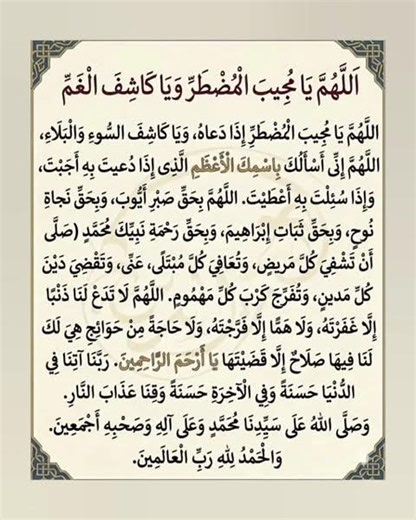 اَللَّهُمَّ يَا مُجِيبَ الْمُضْطَرِّ وَيَا كَاشِفَ الْغَمِّ
اللَّهُمَّ يَا مُجِيبَ الْمُضْطَرِّ إِذَا دَعَاهُ، وَيَا كَاشِفَ السُّوءِ وَالْبَلَاءِ،
اللَّهُمَّ إِنِّي أَسْأَلُكَ بِاسْمِكَ الْأَعْظَمِ الَّذِي إِذَا دُعِيتَ بِهِ أَجَبْتَ،
وَإِذَا سُئِلْتَ بِهِ أَعْطَيْتَ. اللَّهُمَّ بِحَقِّ صَبْرِ أَيُّوبَ، وَبِحَقِّ نَجَاةِ
نُوحٍ، وَبِحَقِّ ثَبَاتِ إِبْرَاهِيمَ، وَبِحَقِّ رَحْمَةِ نَبِيِّكَ مُحَمَّدٍ (صَلَّى
أَنْ تَشْفِيَ كُلَّ مَرِيضٍ، وَتُعَافِيَ كُلَّ مُبْتَلًى، عَنِّي، وَتَقْضِيَ دَيْنَ
كُلِّ مَدِينٍ، وَتُفَرِّجَ كَرْبَ كُلِّ مَهْمُومٍ. اللَّهُمَّ لَا تَدَعْ لَنَا ذَنْبًا
إِلَّا غَفَرْتَهُ، وَلَا هَمًّا إِلَّا فَرَّجْتَهُ، وَلَا حَاجَةً مِنْ حَوَائِجَ هِيَ لَكَ
لَنَا فِيهَا صَلَاحٌ إِلَّا قَضَيْتَهَا يَا أَرْحَمَ الرَّاحِمِينَ. رَبَّنَا آتِنَا فِي
الدُّنْيَا حَسَنَةً وَفِي الْآخِرَةِ حَسَنَةً وَقِنَا عَذَابَ النَّارِ.
وَصَلَّى اللهُ عَلَى سَيِّدِنَا مُحَمَّدٍ وَعَلَى آلِهِ وَصَحْبِهِ أَجْمَعِينَ.
وَالْحَمْدُ لِلهِ رَبِّ الْعَالَمِينَ.